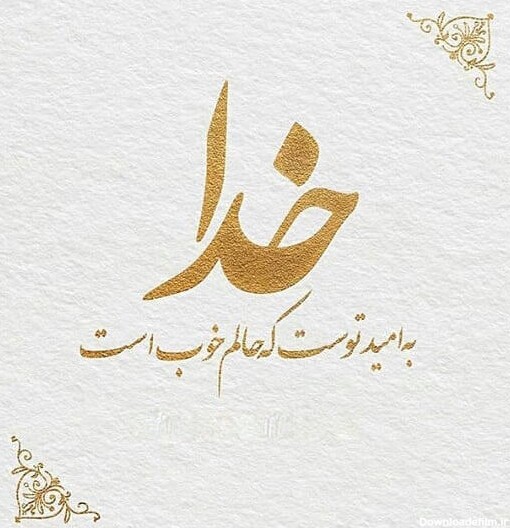 خدا
به امید توست که حالم خوب است
Downloadefilm.ir